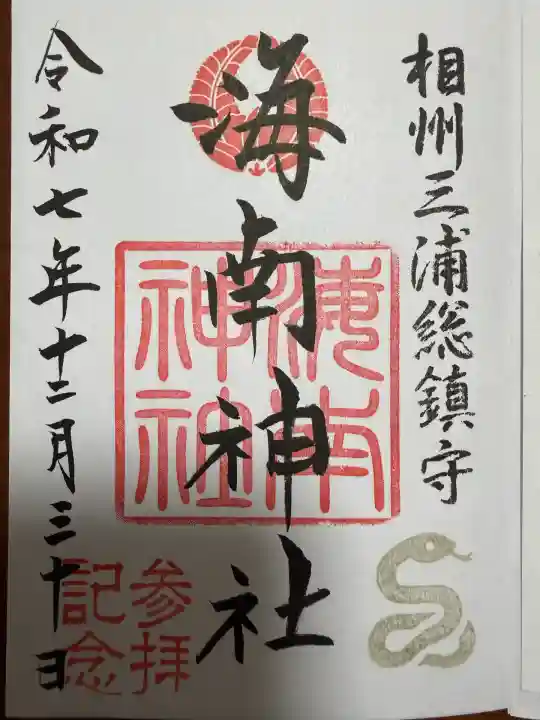 相州三浦総鎮守
海南神社
海南
神社
参拝
記念
令和七年十二月三十日